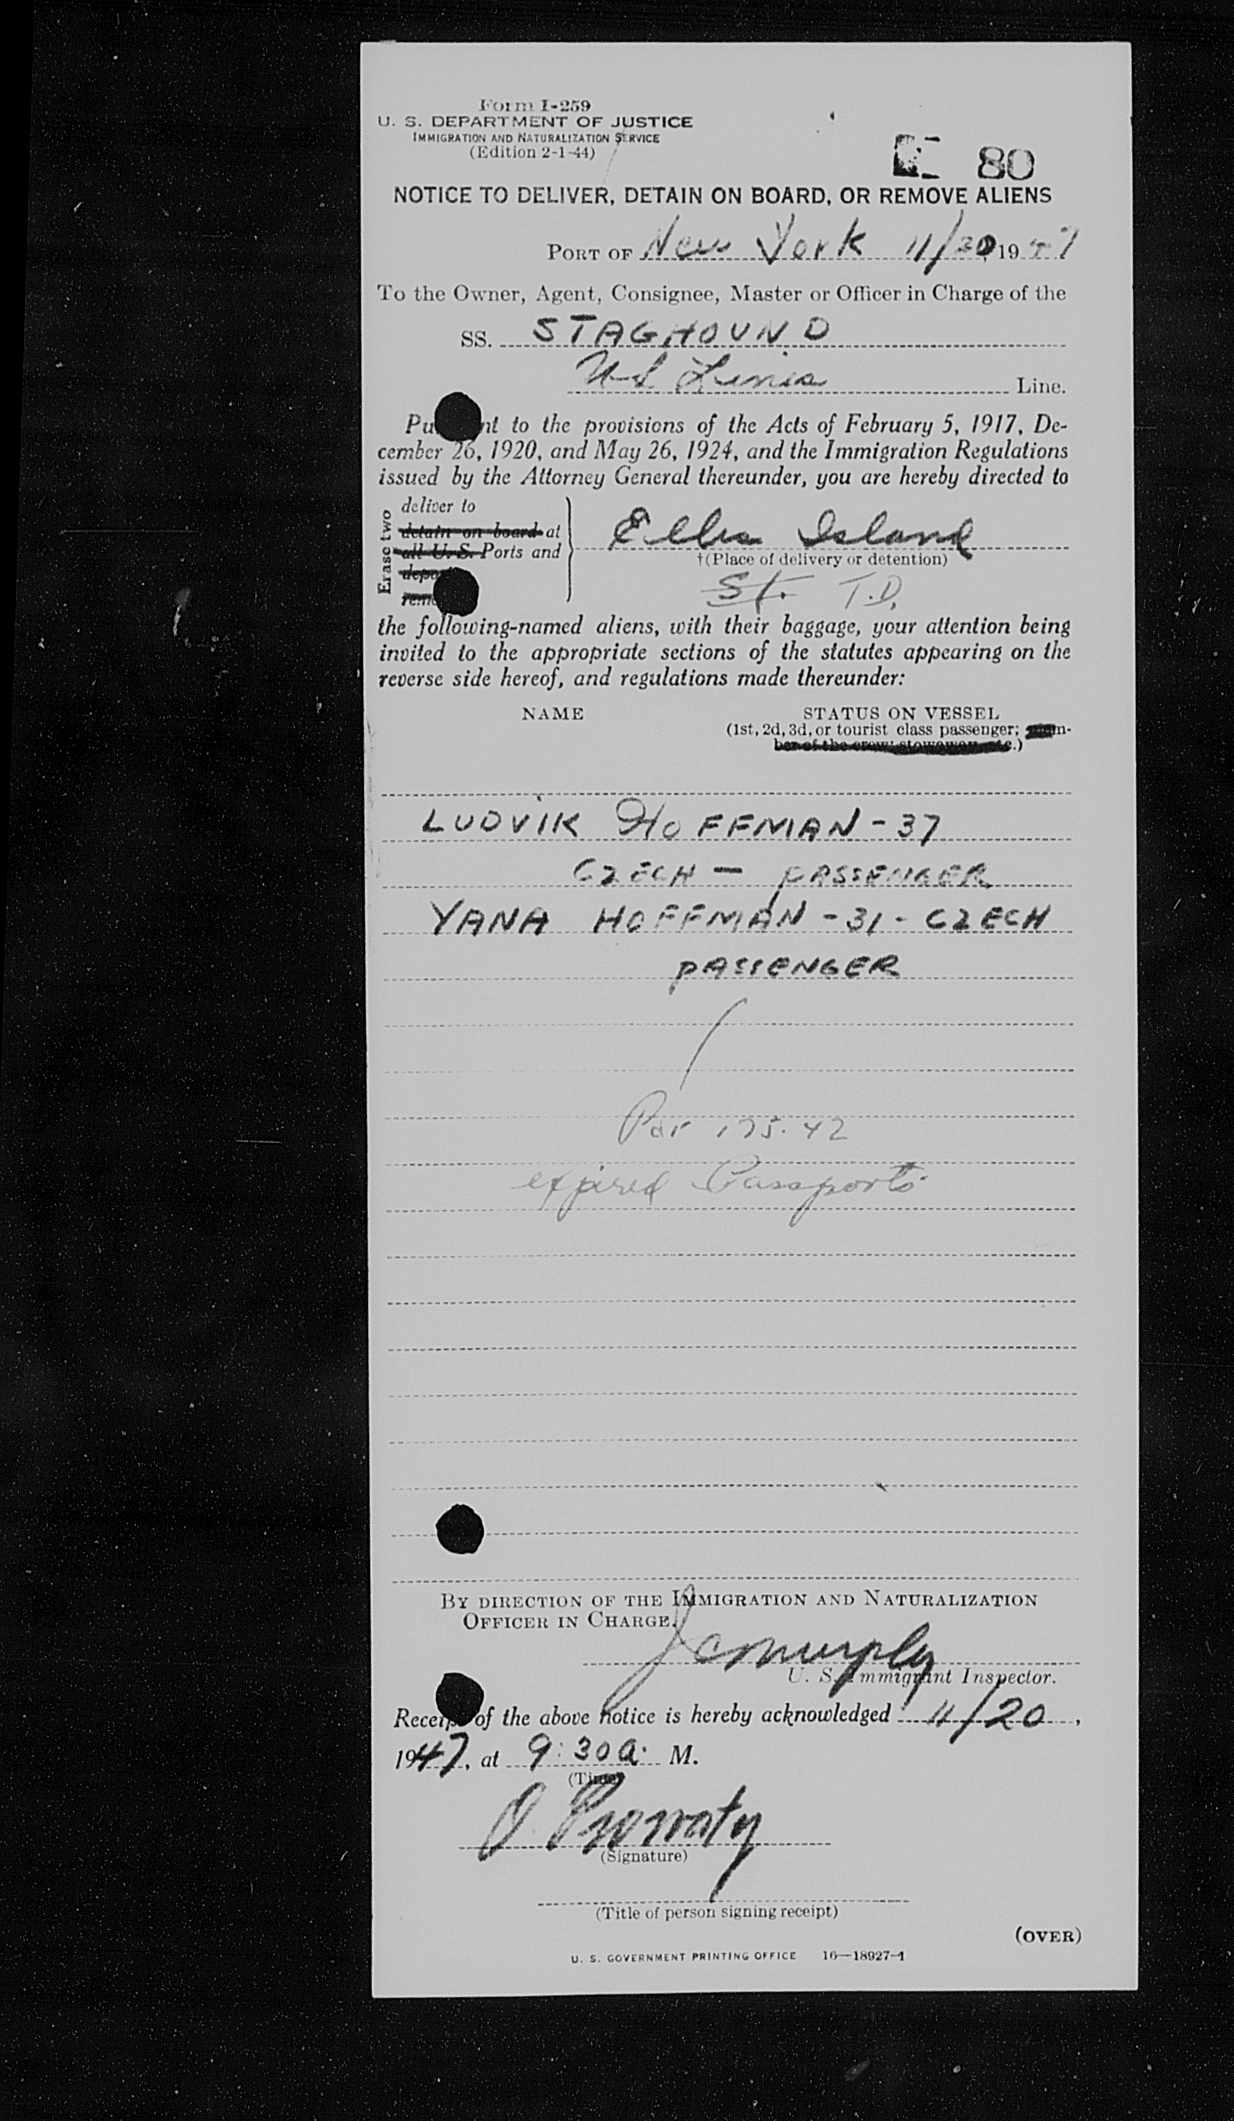 Form I-259
U. S. DEPARTMENT OF JUSTICE
IMMIGRATION AND NATURALIZATION SERVICE
(Edition 2-1-44)
80
NOTICE TO DELIVER, DETAIN ON BOARD, OR REMOVE ALIENS
PORT OF New York 11/20, 1947
To the Owner, Agent, Consignee, Master or Officer in Charge of the
SS. STAGHOUND
US Lines Line.
Pu nt to the provisions of the Acts of February 5, 1917, De-
cember 26, 1920, and May 26, 1924, and the Immigration Regulations
issued by the Attorney General thereunder, you are hereby directed to
Erase two
deliver to
detain on board at
all U. S. Ports and
Ellis Island
†(Place of delivery or detention)
St. T.D.
the following-named aliens, with their baggage, your attention being
invited to the appropriate sections of the statutes appearing on the
reverse side hereof, and regulations made thereunder:
NAME STATUS ON VESSEL
(1st, 2d, 3d, or tourist class passenger; mem-
ber of the crew; stowaway, etc.)
LUDVIK HOFFMAN - 37
CZECH - PASSENGER
YANA HOFFMAN - 31 - CZECH
PASSENGER
Par 175.42
expired Passports
BY DIRECTION OF THE IMMIGRATION AND NATURALIZATION
OFFICER IN CHARGE.
J C Murphy
U. S. Immigrant Inspector.
Receipt of the above notice is hereby acknowledged 11/20,
1947, at 9:30 a. M.
(Time)
(Signature)
(Title of person signing receipt)
(OVER)
U. S. GOVERNMENT PRINTING OFFICE 16—18927-1